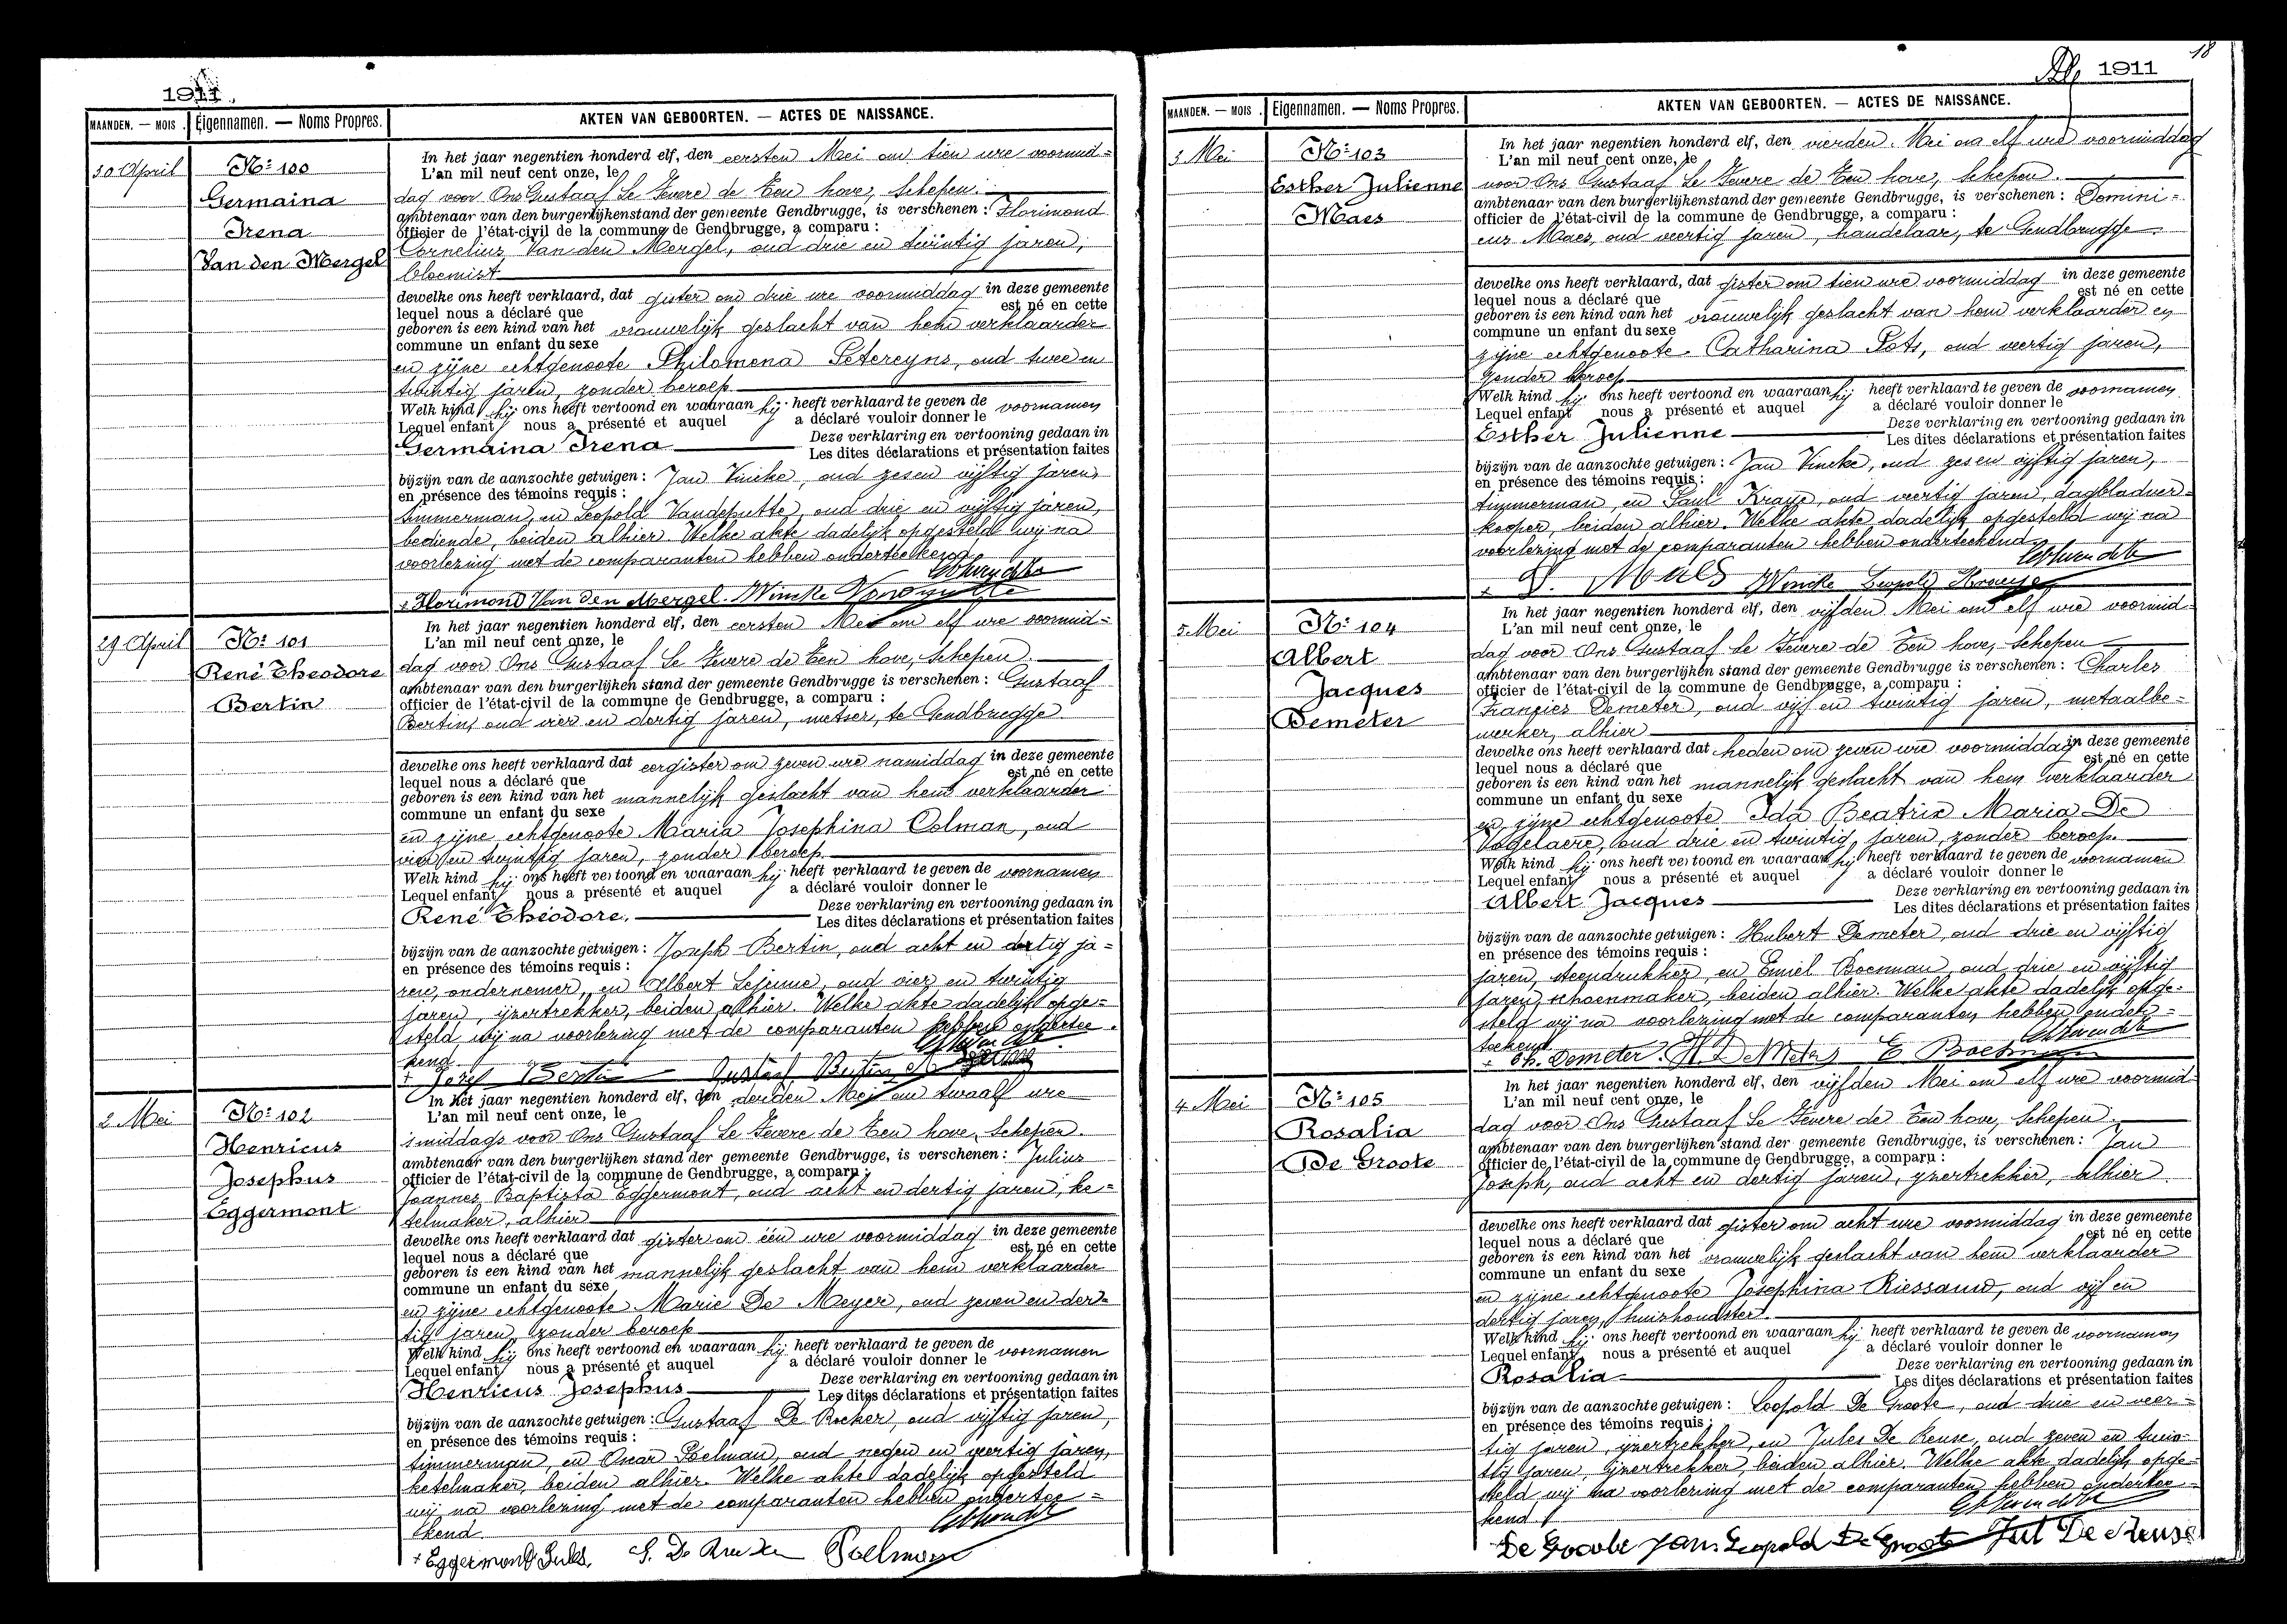 1911.
MAANDEN. — MOIS. Eigennamen. — Noms Propres. AKTEN VAN GEBOORTEN. — ACTES DE NAISSANCE.
30 April
No: 100
Germaina
Irena
Van den Mergel
In het jaar negentien honderd elf, den eersten Mei om tien ure voormid=
L'an mil neuf cent onze, le
dag voor Ons Gustaaf Le Fevere de Ten hove, Schepen.
ambtenaar van den burgerlijkenstand der gemeente Gendbrugge, is verschenen: Florimond
officier de l'état-civil de la commune de Gendbrugge, a comparu:
Cornelius Van den Mergel, oud drie en twintig jaren,
bloemist
dewelke ons heeft verklaard, dat gister om drie ure voormiddag in deze gemeente
lequel nous a déclaré que est né en cette
geboren is een kind van het vrouwelijk geslacht van hem verklaarder
commune un enfant du sexe
en zijne echtgenoote Philomena Petereyns, oud twee en
twintig jaren, zonder beroep
Welk kind hij ons heeft vertoond en waaraan hij heeft verklaard te geven de voornamen
Lequel enfant nous a présenté et auquel a déclaré vouloir donner le
Germaina Irena Deze verklaring en vertooning gedaan in
Les dites déclarations et présentation faites
bijzijn van de aanzochte getuigen: Jan Vincke, oud zes en vijftig jaren,
en présence des témoins requis:
timmerman, en Leopold Vandeputte, oud drie en vijftig jaren,
bediende, beiden alhier. Welke akte dadelijk opgesteld wij na
voorlezing met de comparanten hebben onderteekend.
+ Florimond Van den Mergel. Vincke Vandeputte
29 April
No: 101
René Theodore
Bertin
In het jaar negentien honderd elf, den eersten Mei om elf ure voormid=
L'an mil neuf cent onze, le
dag voor Ons Gustaaf Le Fevere de Ten hove, Schepen
ambtenaar van den burgerlijken stand der gemeente Gendbrugge is verschenen: Gustaaf
officier de l'état-civil de la commune de Gendbrugge, a comparu:
Bertin, oud vier en dertig jaren, metser, te Gendbrugge
dewelke ons heeft verklaard dat eergister om zeven ure namiddag in deze gemeente
lequel nous a déclaré que est né en cette
geboren is een kind van het mannelijk geslacht van hem verklaarder
commune un enfant du sexe
en zijne echtgenoote Maria Josephina Colman, oud
vier en twintig jaren, zonder beroep
Welk kind hij ons heeft vertoond en waaraan hij heeft verklaard te geven de voornamen
Lequel enfant nous a présenté et auquel a déclaré vouloir donner le
René Théodore. Deze verklaring en vertooning gedaan in
Les dites déclarations et présentation faites
bijzijn van de aanzochte getuigen: Joseph Bertin, oud acht en dertig ja=
en présence des témoins requis:
ren, ondernemer, en Albert Lejeune, oud vier en twintig
jaren, ijzertrekker, beiden alhier. Welke akte dadelijk opge=
steld, wij na voorlezing met de comparanten hebben ondertee=
kend
+ Jozef Bertin Gustaaf Bertin
2 Mei
No: 102
Henricus
Josephus
Eggermont
In het jaar negentien honderd elf, den derden Mei om twaalf ure
L'an mil neuf cent onze, le
smiddags voor Ons Gustaaf Le Fevere de Ten hove, Schepen.
ambtenaar van den burgerlijken stand der gemeente Gendbrugge, is verschenen: Julius
officier de l'état-civil de la commune de Gendbrugge, a comparu:
Joannes Baptista Eggermont, oud acht en dertig jaren, ke=
telmaker, alhier
dewelke ons heeft verklaard dat gister om één ure voormiddag in deze gemeente
lequel nous a déclaré que est né en cette
geboren is een kind van het mannelijk geslacht van hem verklaarder
commune un enfant du sexe
en zijne echtgenoote Marie De Meyer, oud zeven en der=
tig jaren, zonder beroep
Welk kind hij ons heeft vertoond en waaraan hij heeft verklaard te geven de voornamen
Lequel enfant nous a présenté et auquel a déclaré vouloir donner le
Henricus Josephus Deze verklaring en vertooning gedaan in
Les dites déclarations et présentation faites
bijzijn van de aanzochte getuigen: Gustaaf De Rocker, oud vijftig jaren,
en présence des témoins requis:
timmerman, en Oscar Poelman, oud negen en veertig jaren,
ketelmaker, beiden alhier. Welke akte dadelijk opgesteld
wij na voorlezing met de comparanten hebben ondertee=
kend.
+ Eggermont Jules. Poelman
18
1911
MAANDEN. — MOIS. Eigennamen. — Noms Propres. AKTEN VAN GEBOORTEN. — ACTES DE NAISSANCE.
3 Mei
No: 103
Esther Julienne
Maes
In het jaar negentien honderd elf, den vierden Mei om elf ure voormiddag
L'an mil neuf cent onze, le
voor Ons Gustaaf Le Fevere de Ten hove, Schepen.
ambtenaar van den burgerlijkenstand der gemeente Gendbrugge, is verschenen: Domini=
officier de l'état-civil de la commune de Gendbrugge, a comparu:
cus Maes, oud veertig jaren, handelaar, te Gendbrugge
dewelke ons heeft verklaard, dat gister om tien ure voormiddag in deze gemeente
lequel nous a déclaré que est né en cette
geboren is een kind van het vrouwelijk geslacht van hem verklaarder en
commune un enfant du sexe
zijne echtgenoote Catharina Pots, oud veertig jaren,
zonder beroep
Welk kind hij ons heeft vertoond en waaraan hij heeft verklaard te geven de voornamen
Lequel enfant nous a présenté et auquel a déclaré vouloir donner le
Esther Julienne Deze verklaring en vertooning gedaan in
Les dites déclarations et présentation faites
bijzijn van de aanzochte getuigen: Jan Vincke, oud zes en vijftig jaren,
en présence des témoins requis:
timmerman, en Paul Kraye, oud veertig jaren, dagbladver=
kooper, beiden alhier. Welke akte dadelijk opgesteld wij na
voorlezing met de comparanten hebben onderteekend
+ D. Maes Vincke Leopold Kraeye
5 Mei
No: 104
Albert
Jacques
Demeter
In het jaar negentien honderd elf, den vijfden Mei om elf ure voormid=
L'an mil neuf cent onze, le
dag voor Ons Gustaaf Le Fevere de Ten hove, Schepen
ambtenaar van den burgerlijken stand der gemeente Gendbrugge is verschenen: Charles
officier de l'état-civil de la commune de Gendbrugge, a comparu:
François Demeter, oud vijf en twintig jaren, metaalbe=
werker, alhier
dewelke ons heeft verklaard dat heden om zeven ure voormiddag in deze gemeente
lequel nous a déclaré que est né en cette
geboren is een kind van het mannelijk geslacht van hem verklaarder
commune un enfant du sexe
en zijne echtgenoote Ida Beatrix Maria De
Vogelaere, oud drie en twintig jaren, zonder beroep.
Welk kind hij ons heeft vertoond en waaraan hij heeft verklaard te geven de voornamen
Lequel enfant nous a présenté et auquel a déclaré vouloir donner le
Albert Jacques Deze verklaring en vertooning gedaan in
Les dites déclarations et présentation faites
bijzijn van de aanzochte getuigen: Hubert Demeter, oud drie en vijftig
en présence des témoins requis:
jaren, steendrukker, en Emiel Boesman, oud drie en vijftig
jaren, schoenmaker, beiden alhier. Welke akte dadelijk opge=
steld wij na voorlezing met de comparanten hebben onder=
teekend
+ Ch. Demeter. H Demeter E Boesman
4 Mei
No: 105
Rosalia
De Groote
In het jaar negentien honderd elf, den vijfden Mei om elf ure voormid
L'an mil neuf cent onze, le
dag voor Ons Gustaaf Le Fevere de Ten hove, Schepen.
ambtenaar van den burgerlijken stand der gemeente Gendbrugge, is verschenen: Jan
officier de l'état-civil de la commune de Gendbrugge, a comparu:
Joseph, oud acht en dertig jaren, ijzertrekker, alhier
dewelke ons heeft verklaard dat gister om acht ure voormiddag in deze gemeente
lequel nous a déclaré que est né en cette
geboren is een kind van het vrouwelijk geslacht van hem verklaarder
commune un enfant du sexe
en zijne echtgenoote Josephina Riessauw, oud vijf en
dertig jaren, huishoudster.
Welk kind hij ons heeft vertoond en waaraan hij heeft verklaard te geven de voornamen
Lequel enfant nous a présenté et auquel a déclaré vouloir donner le
Rosalia Deze verklaring en vertooning gedaan in
Les dites déclarations et présentation faites
bijzijn van de aanzochte getuigen: Leopold De Groote, oud drie en veer=
en présence des témoins requis:
tig jaren, ijzertrekker, en Jules De Reuse, oud zeven en twin=
tig jaren, ijzertrekker, beiden alhier. Welke akte dadelijk opge=
steld wij na voorlezing met de comparanten hebben ondertee=
kend.
De Groote Jan. Leopold De Groote Jul De Reuse